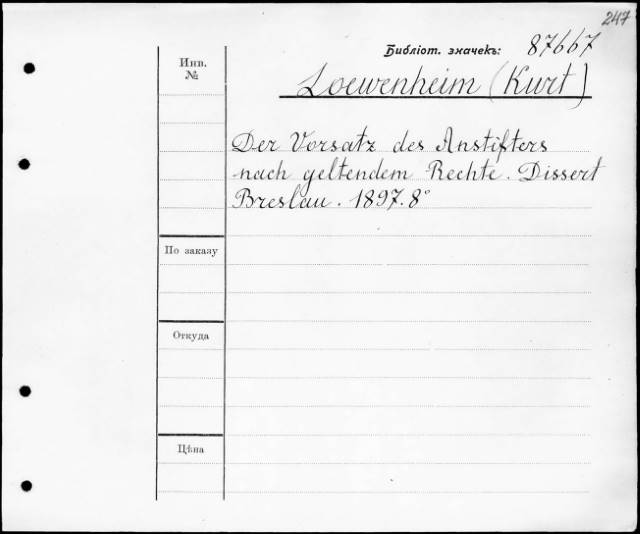 247
Библіот. значекъ: 87667
Инв.
№
Loewenheim (Kurt)
Der Vorsatz des Anstifters
nach geltendem Rechte. Dissert
Breslau. 1897. 8°
По заказу
Откуда
Цѣна